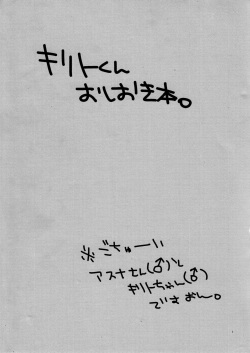 キリトくん
おしおき本。
※ごちゅーい
アスナさん(♂)と
キリトちゃん(♂)
でさおん。